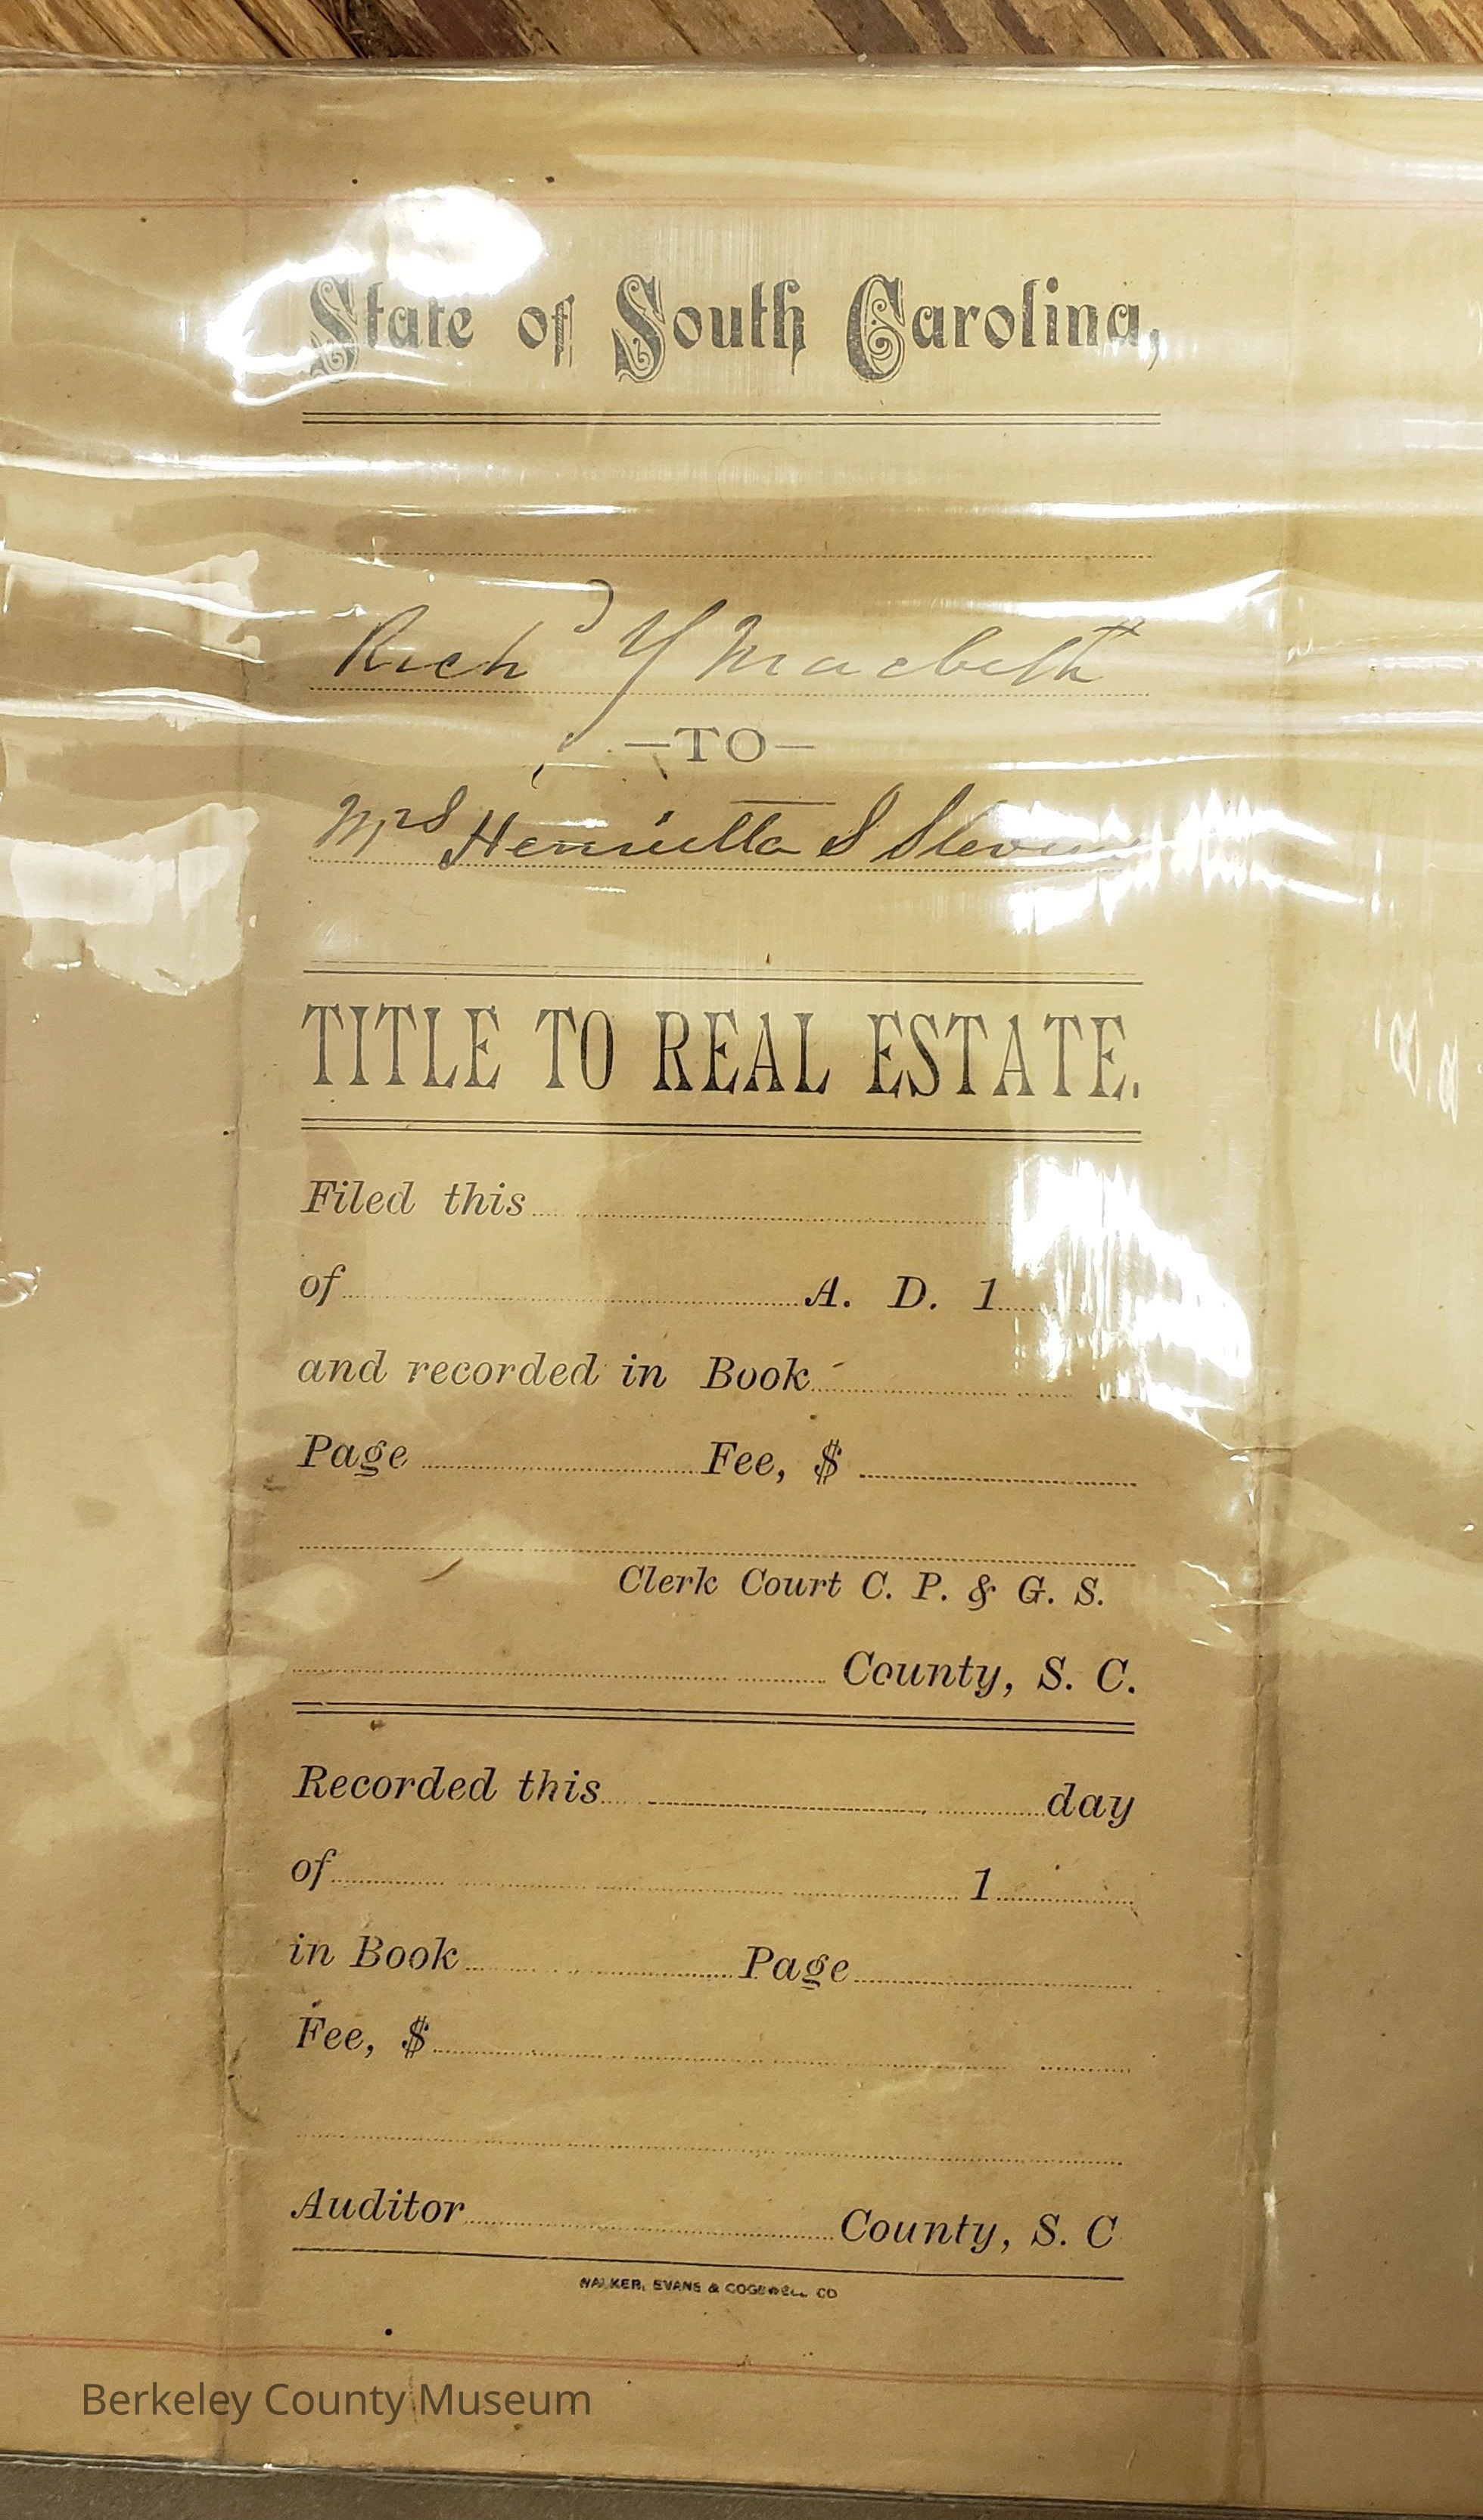 State of South Carolina,
Richd Y Macbeth
—TO—
Mrs Henrietta S Stevens
TITLE TO REAL ESTATE.
Filed this
of A. D. 1
and recorded in Book
Page Fee, $
Clerk Court C. P. & G. S.
County, S. C.
Recorded this day
of 1
in Book Page
Fee, $
Auditor County, S. C
WALKER, EVANS & COGSWELL CO
Berkeley County Museum